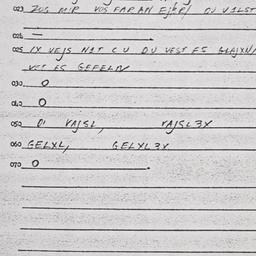 023 ZOG MIR VOS FAR AN EJBER/ DU VILST
024 —
025 IX VEJS NIT CU DU VEST ES GLAJXN/
VET ES GEFELN
030 0
040 0
050 DI RAJSL, RAJSL3X
060 GELXL, GELXL3X
070 0